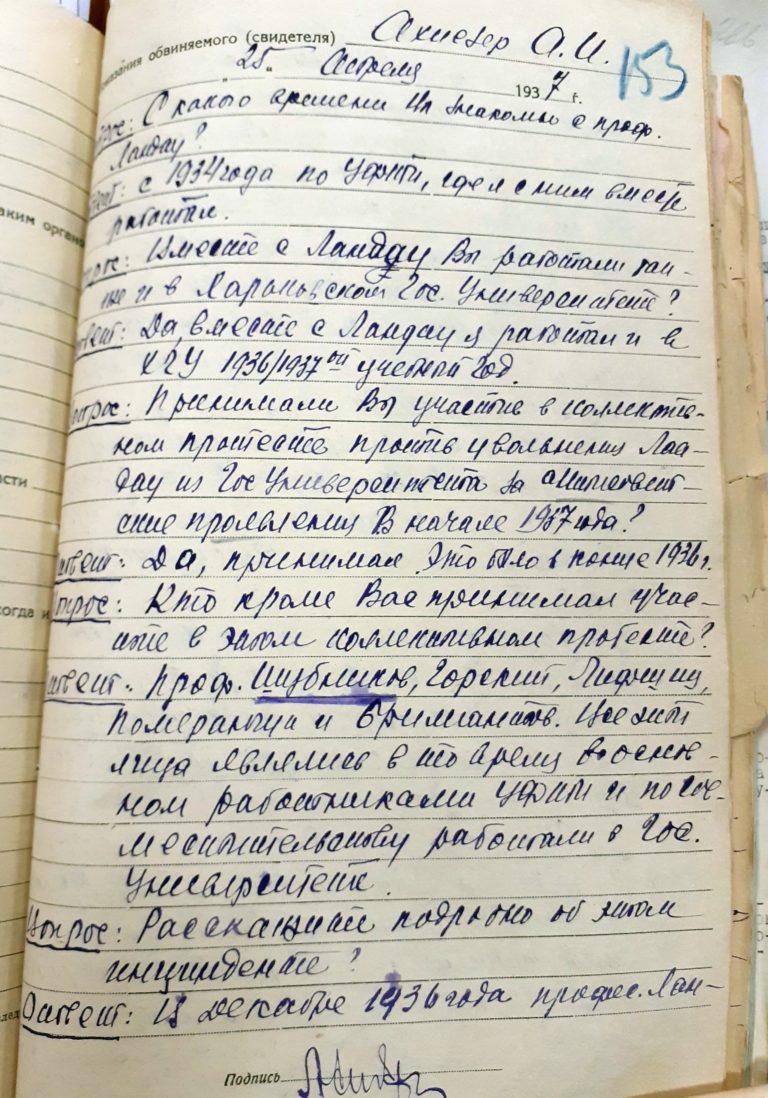 показания обвиняемого (свидетеля) Ахиезер А.И.
153
„25„ Апреля 1937 г.
прос: С какого времени Вы знакомы с проф.
Ландау?
твет: с 1934 года по УФТИ, где я с ним вместе
работал.
прос: Вместе с Ландау Вы работали так-
же и в Харьковском Гос. Университете?
твет: Да, вместе с Ландау я работал и в
ХГУ 1936/1937ой учебный год.
опрос: Принимали Вы участие в коллектив-
ном протесте против увольнения Лан-
дау из Гос Университета за
ские проявления в начале 1937 года?
Ответ: Да, принимал. Это было в конце 1936 г.
Вопрос: Кто кроме Вас принимал учас-
тие в этом коллективном протесте?
Ответ: Проф. Шубников, Горский, Лифшиц,
Померанчук и Бриллиантов. Все эти
лица являлись в то время в основ-
ном работниками УФТИ и по сов-
местительству работали в Гос.
Университете.
Вопрос: Расскажите подробно об этом
инциденте?
Ответ: В декабре 1936 года профес. Лан-
Подпись
аким органо
сти
когда и